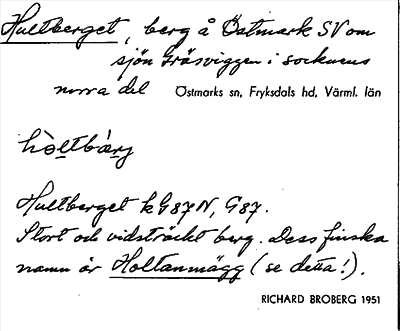 Hultberget, berg å Östmark SV om
sjön Gräsviggen i socknens
norra del Östmarks sn, Fryksdals hd, Värml. län
hòltbærj
Hultberget k G87N, G87.
Stort och vidsträckt berg. Dess finska
namn är Holtanmägg (se detta!).
RICHARD BROBERG 1951